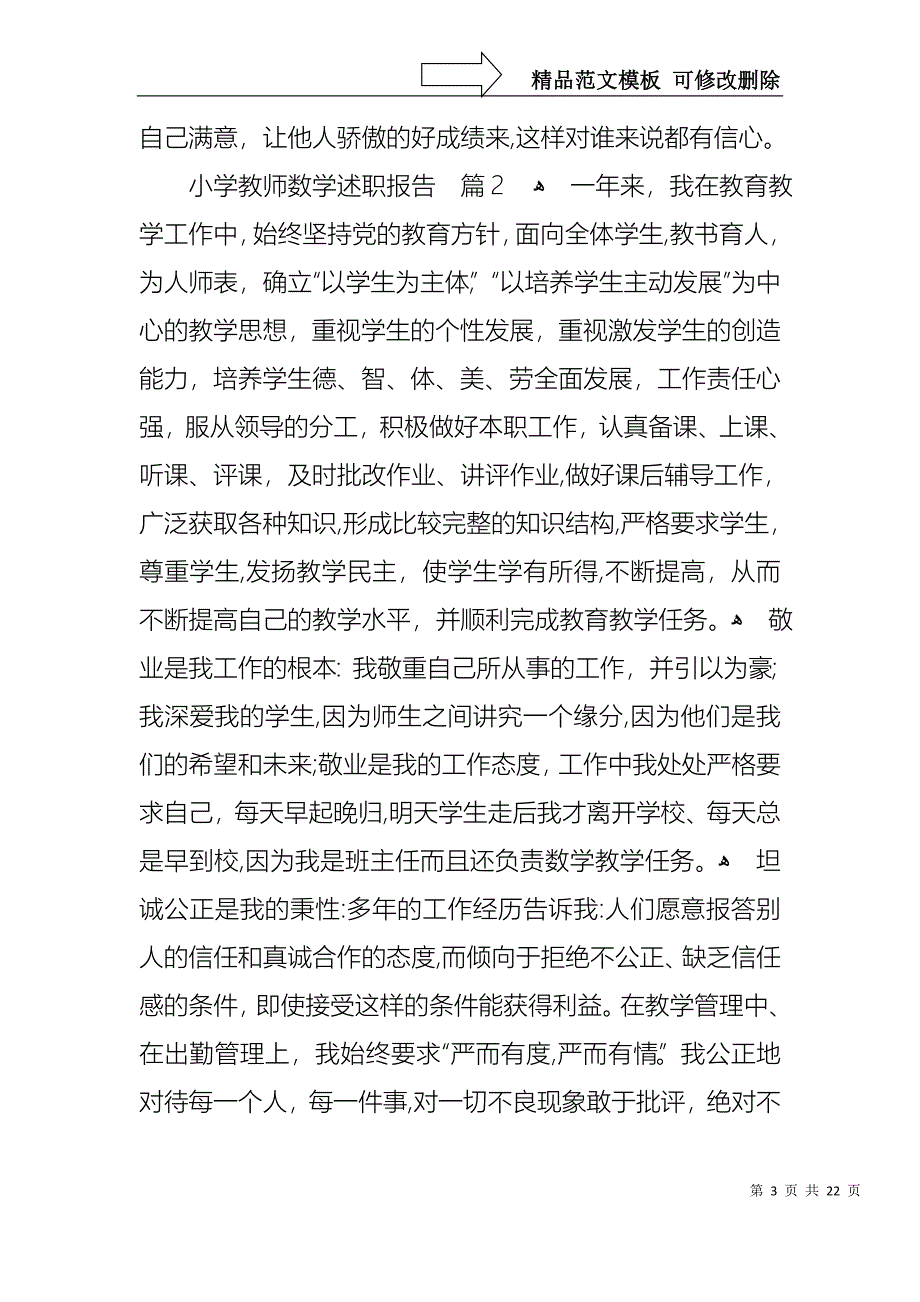 精品范文模板 可修改删除
自己满意，让他人骄傲的好成绩来,这样对谁来说都有信心。
小学教师数学述职报告 篇2 ﻬ 一年来，我在教育教
学工作中,始终坚持党的教育方针,面向全体学生,教书育人，
为人师表，确立“以学生为主体”,“以培养学生主动发展”为中
心的教学思想，重视学生的个性发展，重视激发学生的创造
能力，培养学生德、智、体、美、劳全面发展，工作责任心
强，服从领导的分工，积极做好本职工作，认真备课、上课、
听课、评课，及时批改作业、讲评作业,做好课后辅导工作，
广泛获取各种知识,形成比较完整的知识结构,严格要求学生，
尊重学生,发扬教学民主，使学生学有所得,不断提高，从而
不断提高自己的教学水平，并顺利完成教育教学任务。ﻬ 敬
业是我工作的根本: 我敬重自己所从事的工作，并引以为豪;
我深爱我的学生,因为师生之间讲究一个缘分,因为他们是我
们的希望和未来;敬业是我的工作态度，工作中我处处严格要
求自己，每天早起晚归,明天学生走后我才离开学校、每天总
是早到校,因为我是班主任而且还负责数学教学任务。ﻬ 坦
诚公正是我的秉性:多年的工作经历告诉我:人们愿意报答别
人的信任和真诚合作的态度,而倾向于拒绝不公正、缺乏信任
感的条件，即使接受这样的条件能获得利益。在教学管理中、
在出勤管理上，我始终要求“严而有度,严而有情”。我公正地
对待每一个人，每一件事,对一切不良现象敢于批评，绝对不
第 3 页 共 22 页